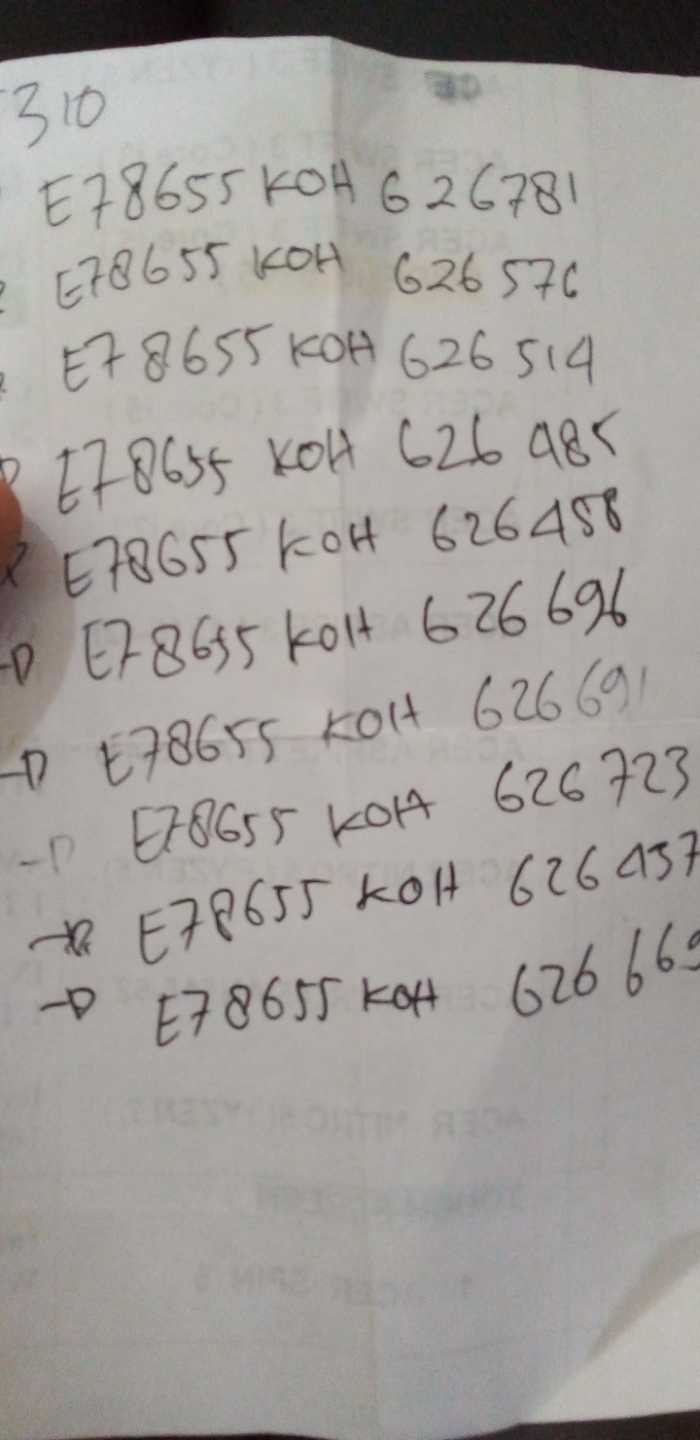 310
E78655 KOH 626781
E78655 KOH 626576
E78655 KOH 626514
E78655 KOH 626485
E78655 KOH 626458
E78655 KOH 626696
E78655 KOH 626691
E78655 KOH 626723
E78655 KOH 626457
E78655 KOH 626669